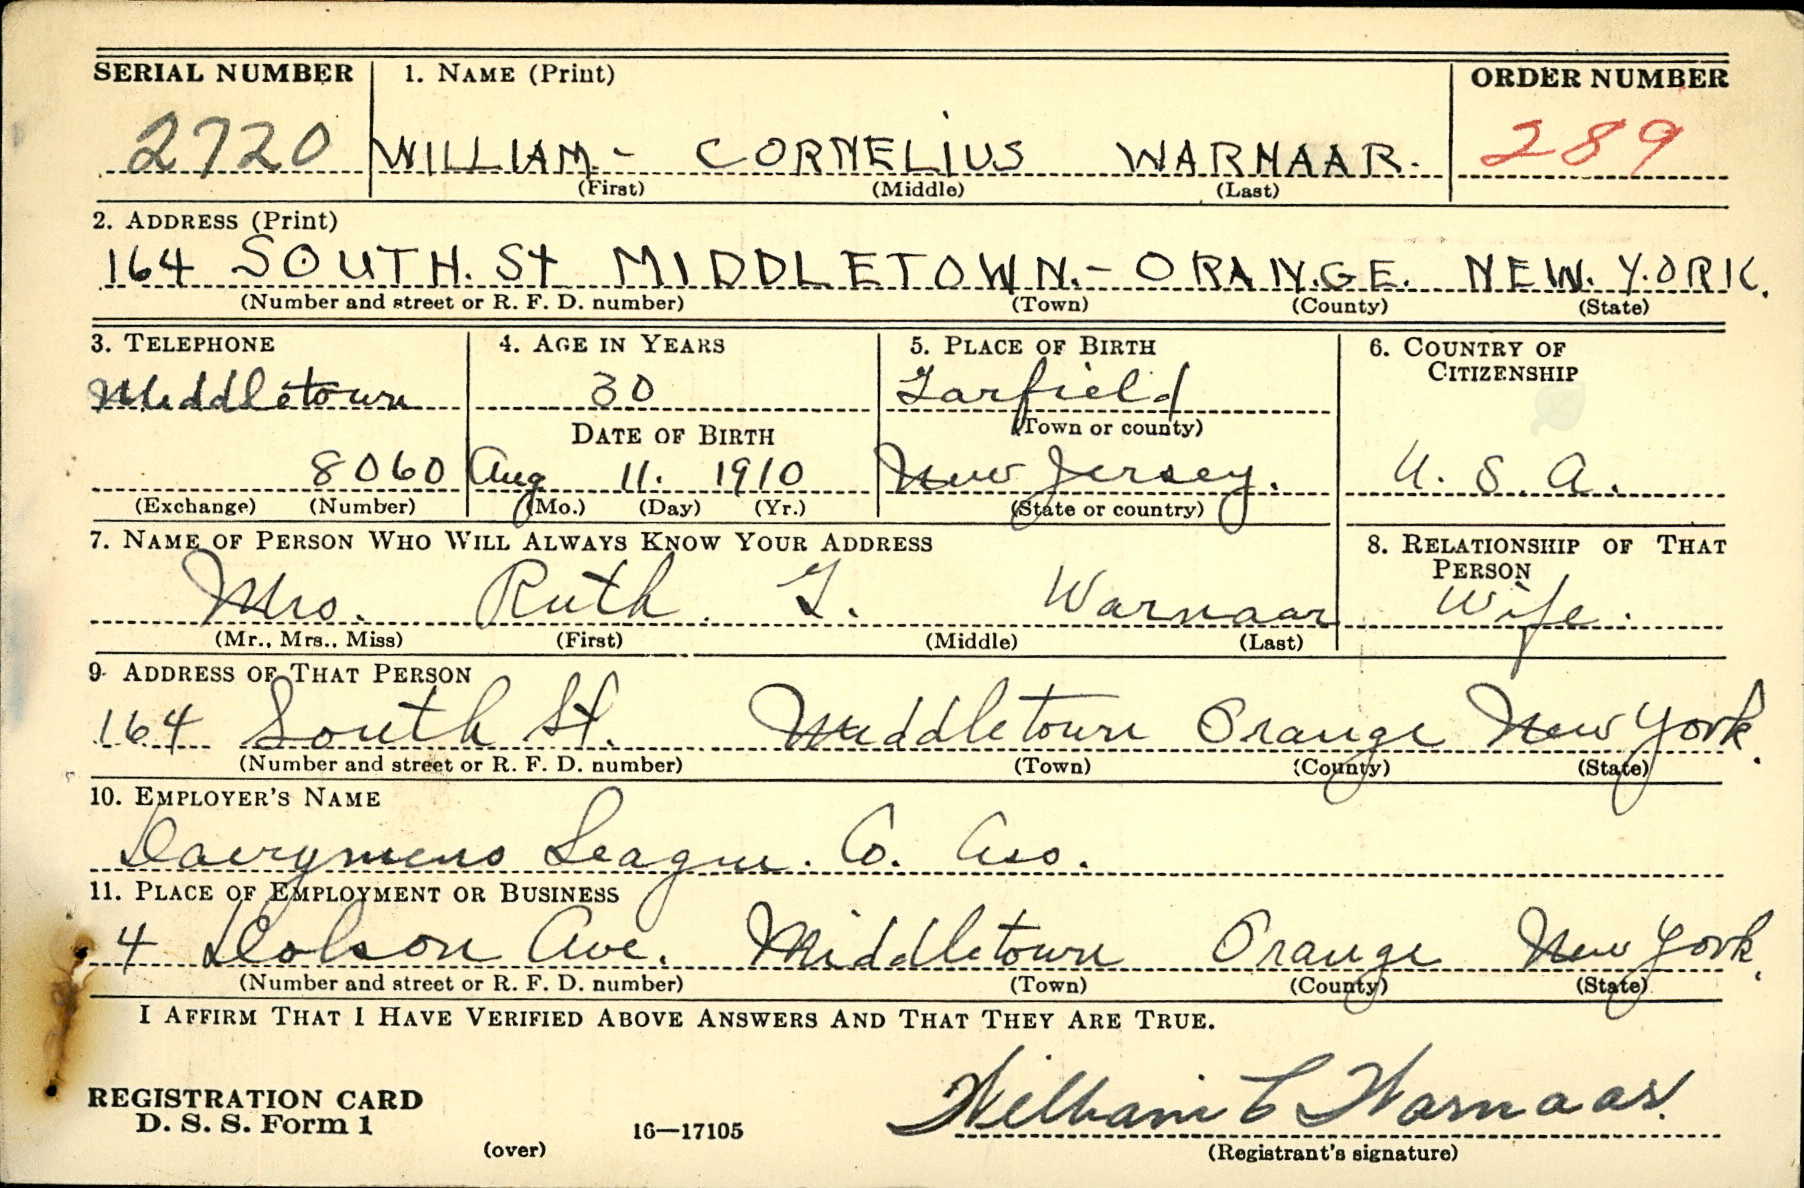 SERIAL NUMBER 1. NAME (Print) ORDER NUMBER
2720 WILLIAM- CORNELIUS WARNAAR. 289
(First) (Middle) (Last)
2. ADDRESS (Print)
164 SOUTH. St MIDDLETOWN.- ORANGE. NEW. YORK.
(Number and street or R. F. D. number) (Town) (County) (State)
3. TELEPHONE 4. AGE IN YEARS 5. PLACE OF BIRTH 6. COUNTRY OF
CITIZENSHIP
Middletown 30 Garfield
DATE OF BIRTH (Town or county)
8060 Aug 11. 1910 New Jersey. U. S. A.
(Exchange) (Number) (Mo.) (Day) (Yr.) (State or country)
7. NAME OF PERSON WHO WILL ALWAYS KNOW YOUR ADDRESS 8. RELATIONSHIP OF THAT
PERSON
Mrs. Ruth. G. Warnaar Wife.
(Mr., Mrs., Miss) (First) (Middle) (Last)
9. ADDRESS OF THAT PERSON
164 South St. Middletown Orange New York.
(Number and street or R. F. D. number) (Town) (County) (State)
10. EMPLOYER'S NAME
Dairymens League. Co. Aso.
11. PLACE OF EMPLOYMENT OR BUSINESS
4 Dolson Ave. Middletown Orange New York.
(Number and street or R. F. D. number) (Town) (County) (State)
I AFFIRM THAT I HAVE VERIFIED ABOVE ANSWERS AND THAT THEY ARE TRUE.
REGISTRATION CARD
D. S. S. Form 1
William C Warnaar.
(over) 16—17105 (Registrant's signature)